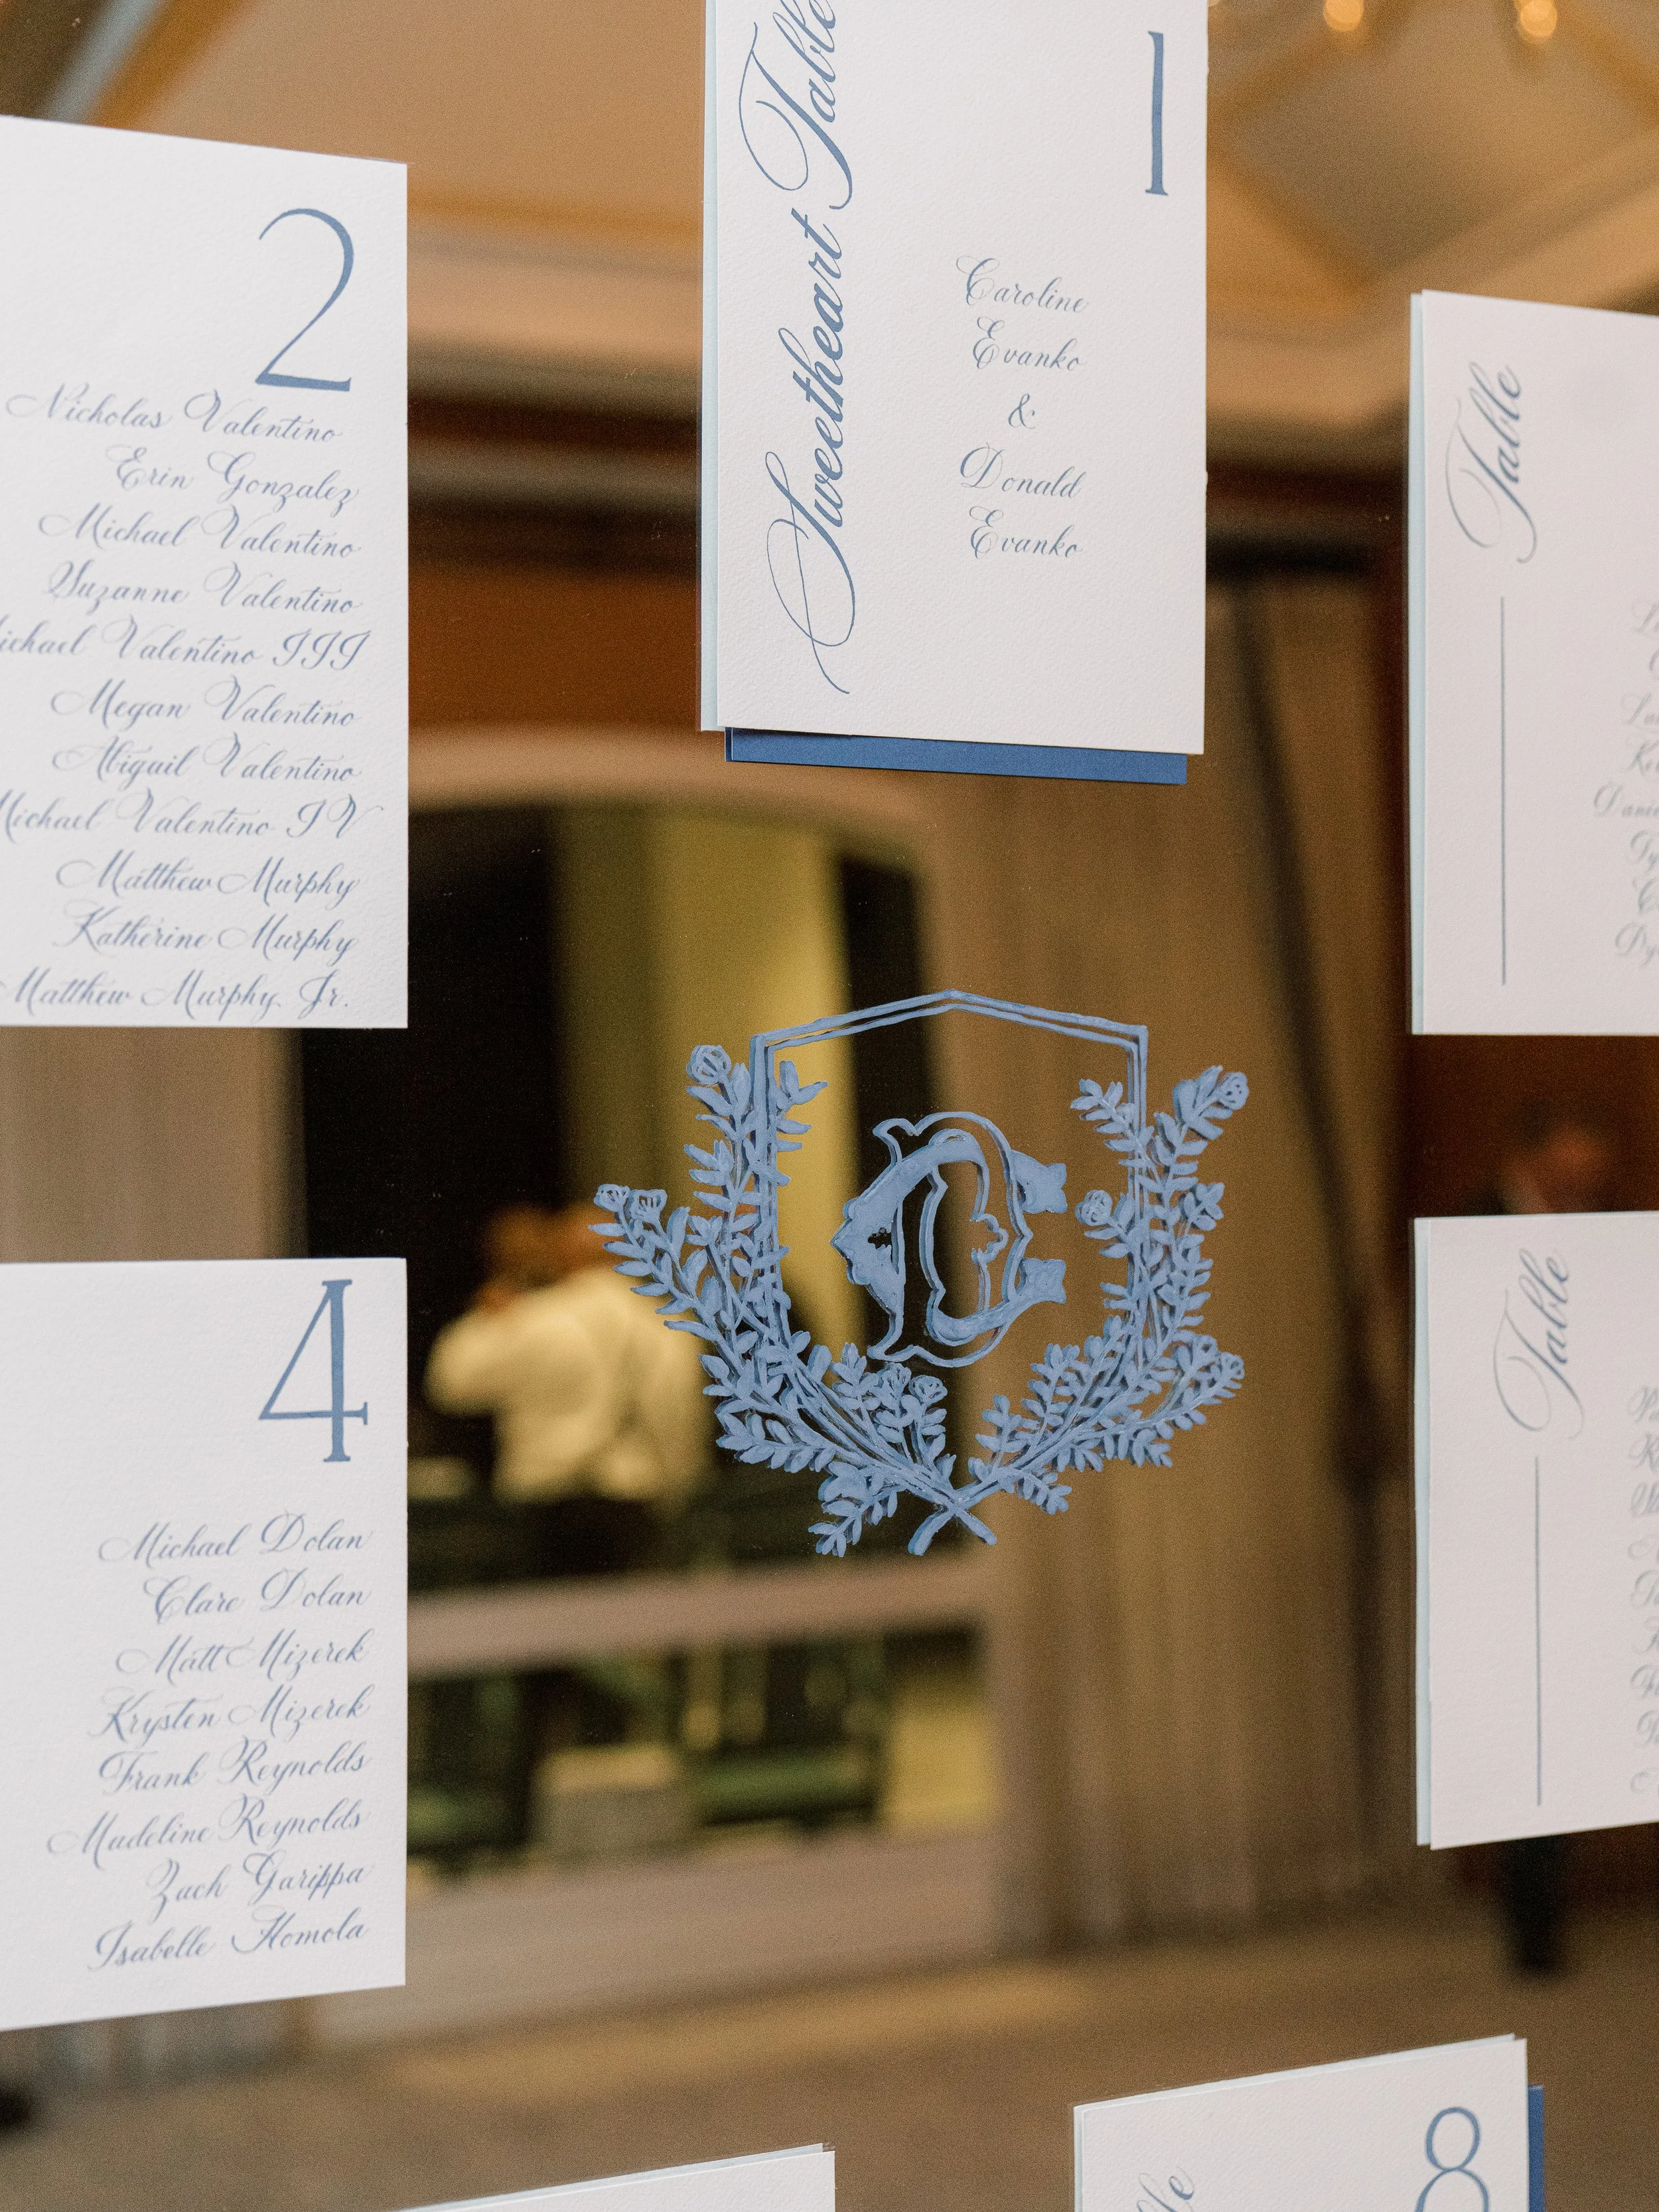 Sweetheart Table
1
Caroline
Evanko
&
Donald
Evanko
2
Nicholas Valentino
Erin Gonzalez
Michael Valentino
Suzanne Valentino
Michael Valentino III
Megan Valentino
Abigail Valentino
Michael Valentino IV
Matthew Murphy
Katherine Murphy
Matthew Murphy Jr.
Table
4
Michael Dolan
Clare Dolan
Matt Mizerek
Krysten Mizerek
Frank Reynolds
Madeline Reynolds
Zach Garippa
Isabelle Homola
Table
8